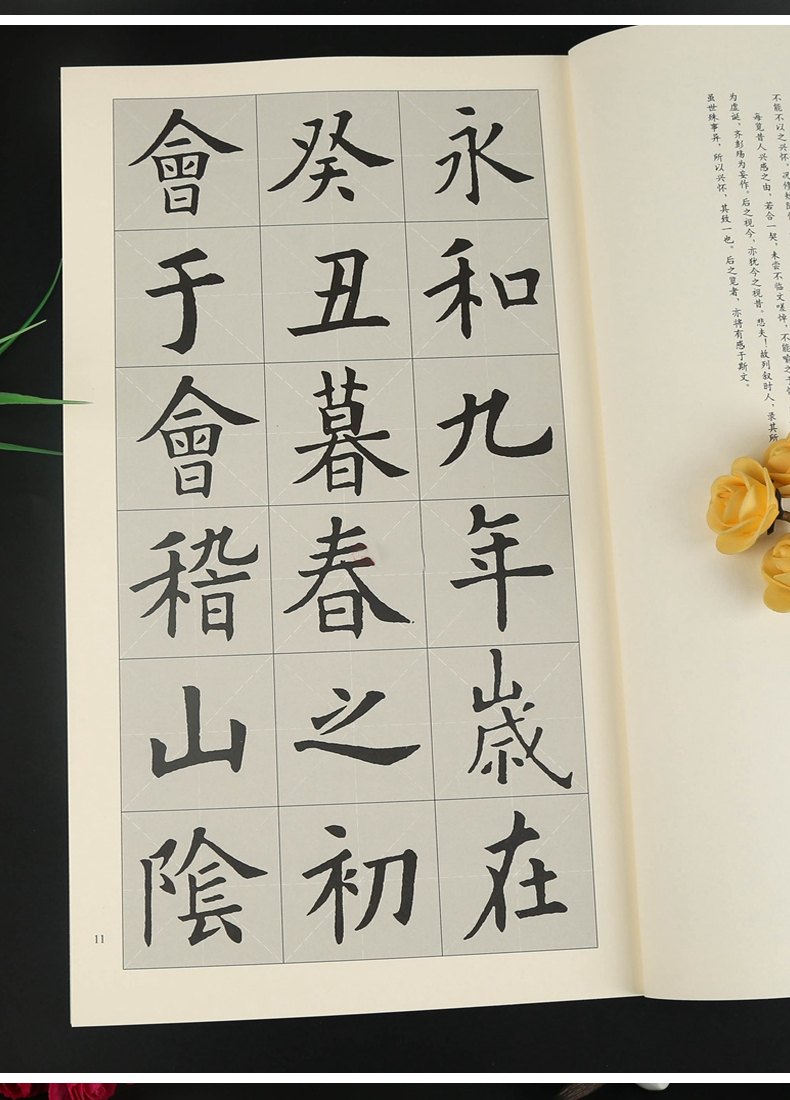 不能不以之兴怀，况修短随
每览昔人兴感之由，若合一契，未尝不临文嗟悼，不能喻之于
为虚诞，齐彭殇为妄作。后之视今，亦犹今之视昔。悲夫！故列叙时人，录其所
虽世殊事异，所以兴怀，其致一也。后之览者，亦将有感于斯文。
永和九年歲在
癸丑暮春之初
會于會稽山陰
11